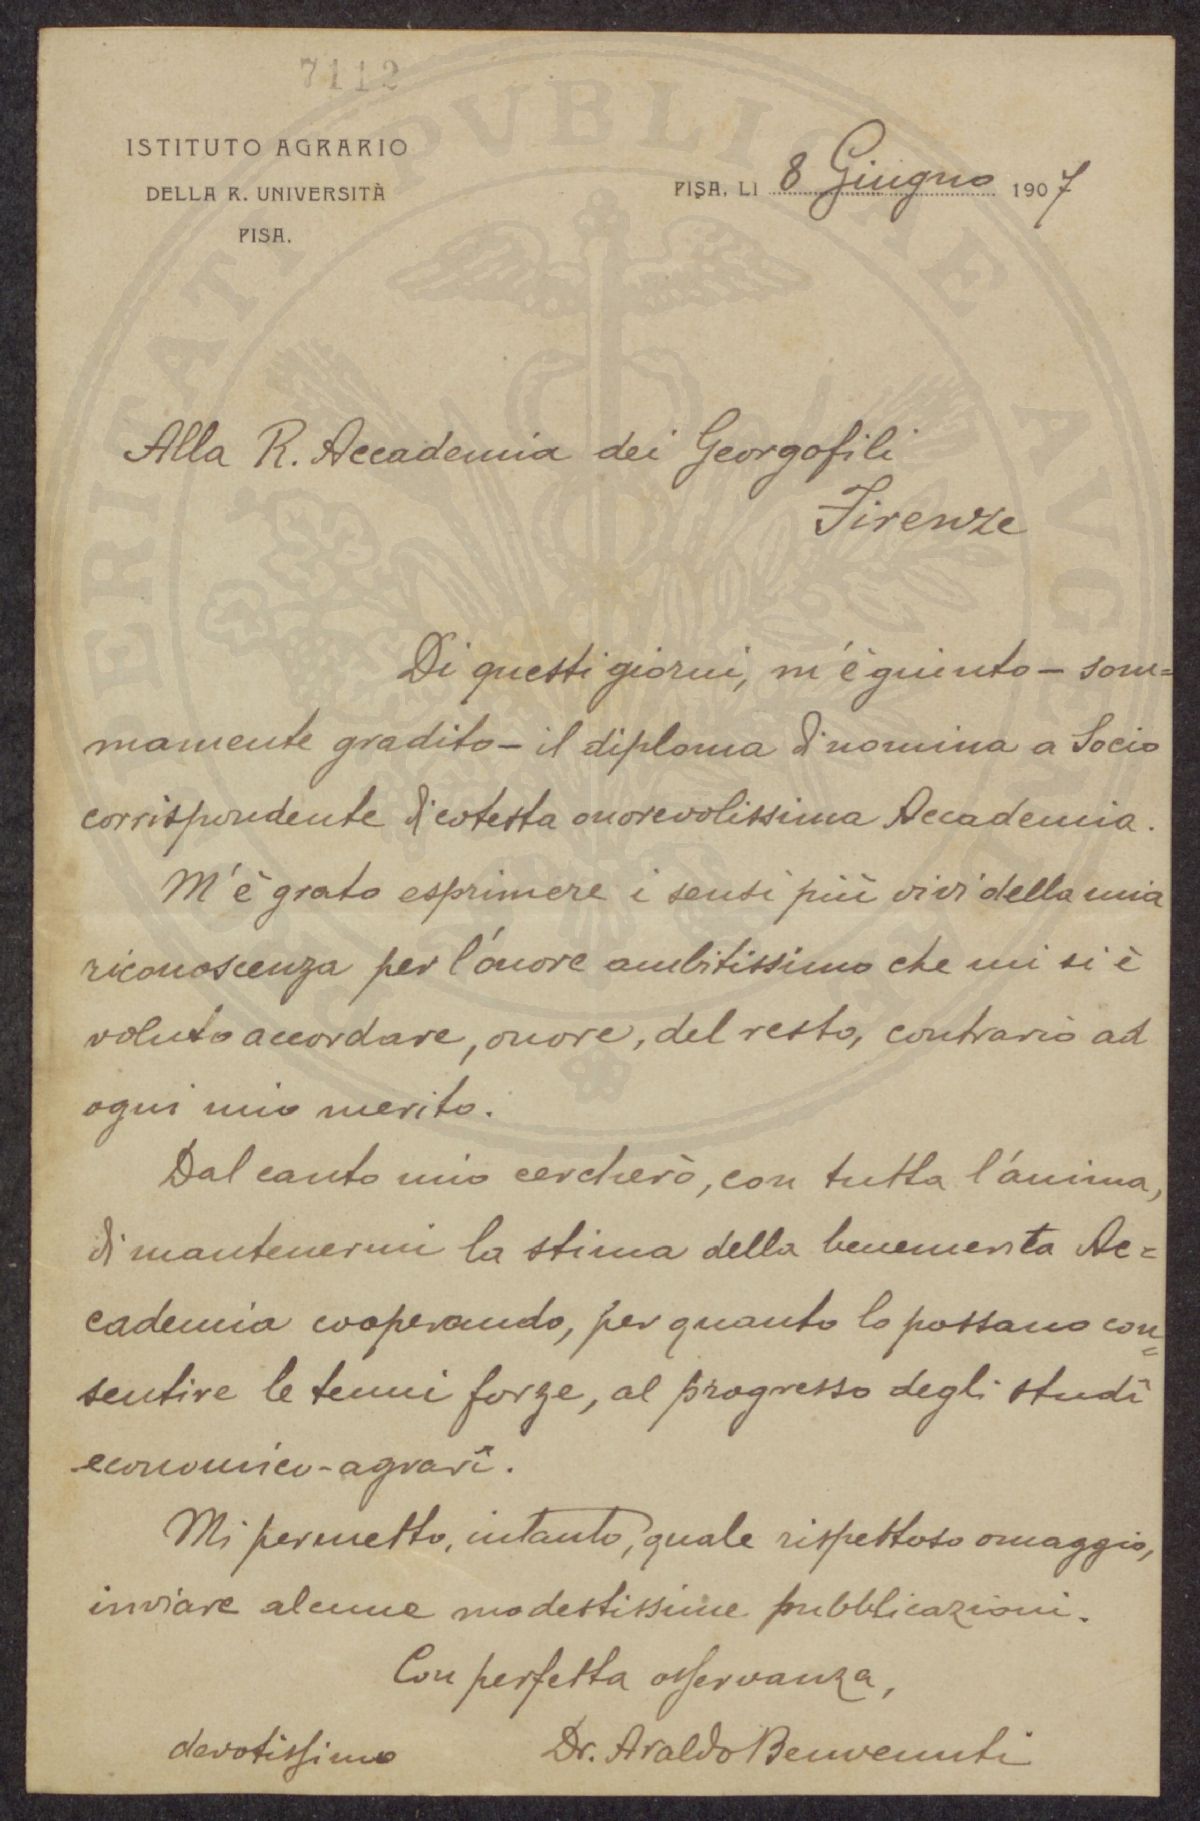 7112
ISTITUTO AGRARIO
DELLA R. UNIVERSITÀ
PISA.
PISA, LI 8 Giugno 1907
Alla R. Accademia dei Georgofili
Firenze
Di questi giorni, m'è giunto – som=
mamente gradito – il diploma di nomina a Socio
corrispondente di cotesta onorevolissima Accademia.
M'è grato esprimere i sensi più vivi della mia
riconoscenza per l'onore ambitissimo che mi si è
voluto accordare, onore, del resto, contrario ad
ogni mio merito.
Dal canto mio cercherò, con tutta l'anima,
di mantenermi la stima della benemerita Ac=
cademia cooperando, per quanto lo possano con=
sentire le tenui forze, al progresso degli studî
economico-agrarî.
Mi permetto, intanto, quale rispettoso omaggio,
inviare alcune modestissime pubblicazioni.
Con perfetta osservanza,
devotissimo Dr. Araldo Benvenuti
PROSPERITATI PVBLICAE AVGENDAE